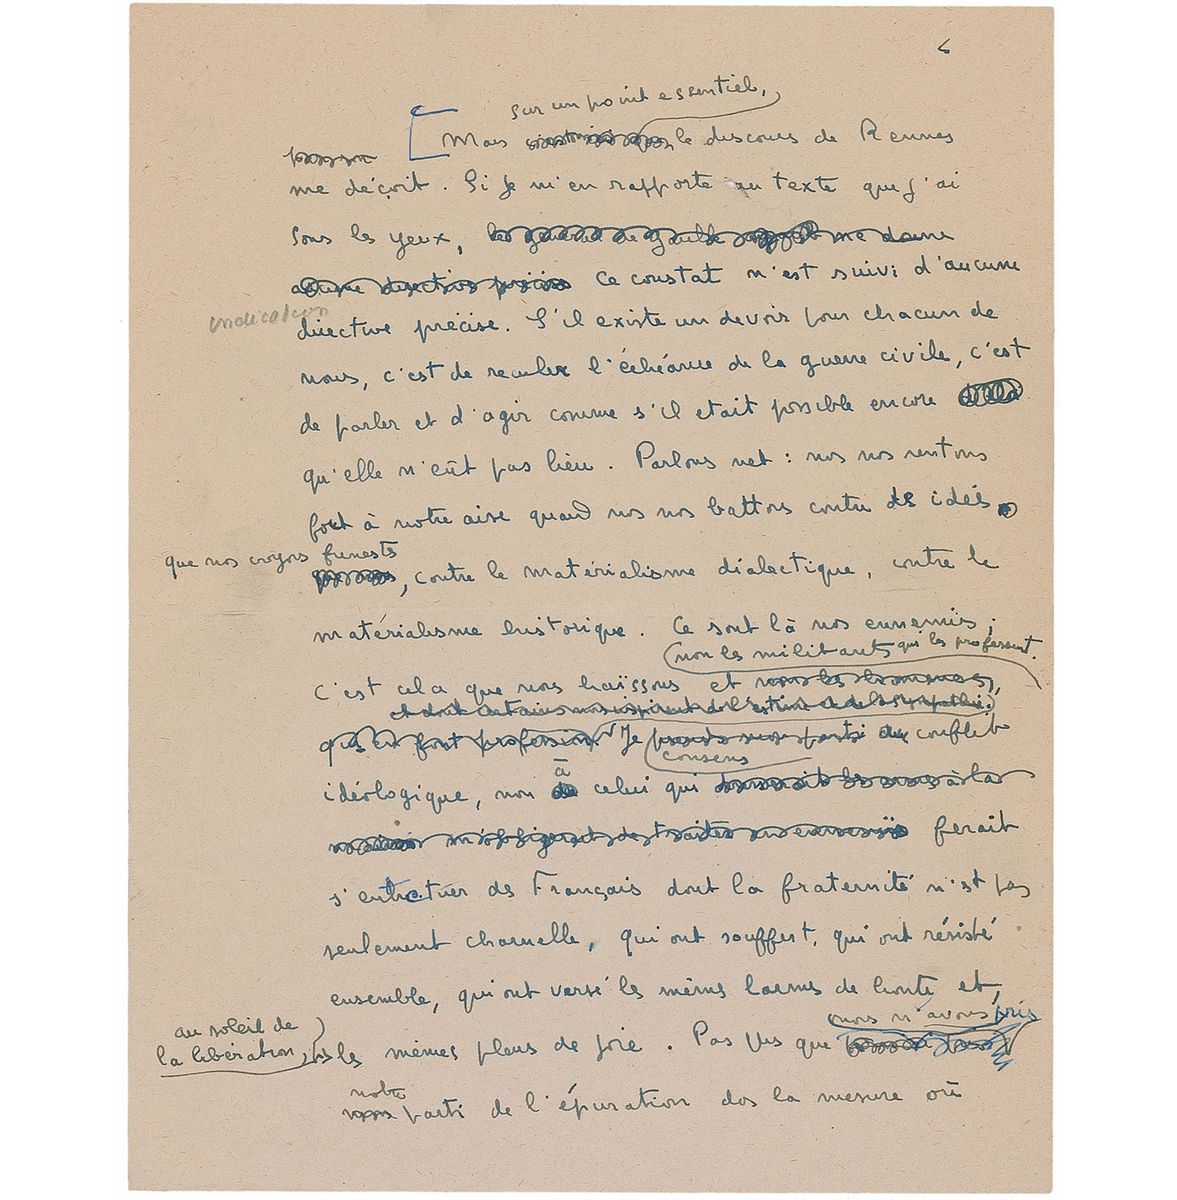 6
sur un point essentiel,
[Mais le discours de Rennes
me déçoit. Si je m'en rapporte au texte que j'ai
sous les yeux, le général de Gaulle me donne
aucune directive précise Ce constat n'est suivi d'aucune
indication
directive précise. S'il existe un devoir pour chacun de
nous, c'est de reculer l'échéance de la guerre civile, c'est
de parler et d'agir comme s'il etait possible encore
qu'elle n'eût pas lieu. Parlons net : nos nos sentons
fort à notre aise quand nos nos battons contre des idées
que nos croyons funestes
, contre le matérialisme dialectique, contre le
matérialisme historique. Ce sont là nos ennemis ;
non les militants qui les professent.
c'est cela que nous haïssons et non les hommes,
et dont certains nous inspirent de l'estime et de la sympathie.
qui en font profession. Je conflit
consens
idéologique, non à celui qui à la
ferait
s'entretuer des Français dont la fraternité n'est pas
seulement charnelle, qui ont souffert, qui ont résisté
ensemble, qui ont versé les mêmes larmes de honte et,
au soleil de
la libération,
nous n'avons pris
les mêmes pleurs de joie. Pas plus que
notre
parti de l'épuration dos la mesure où